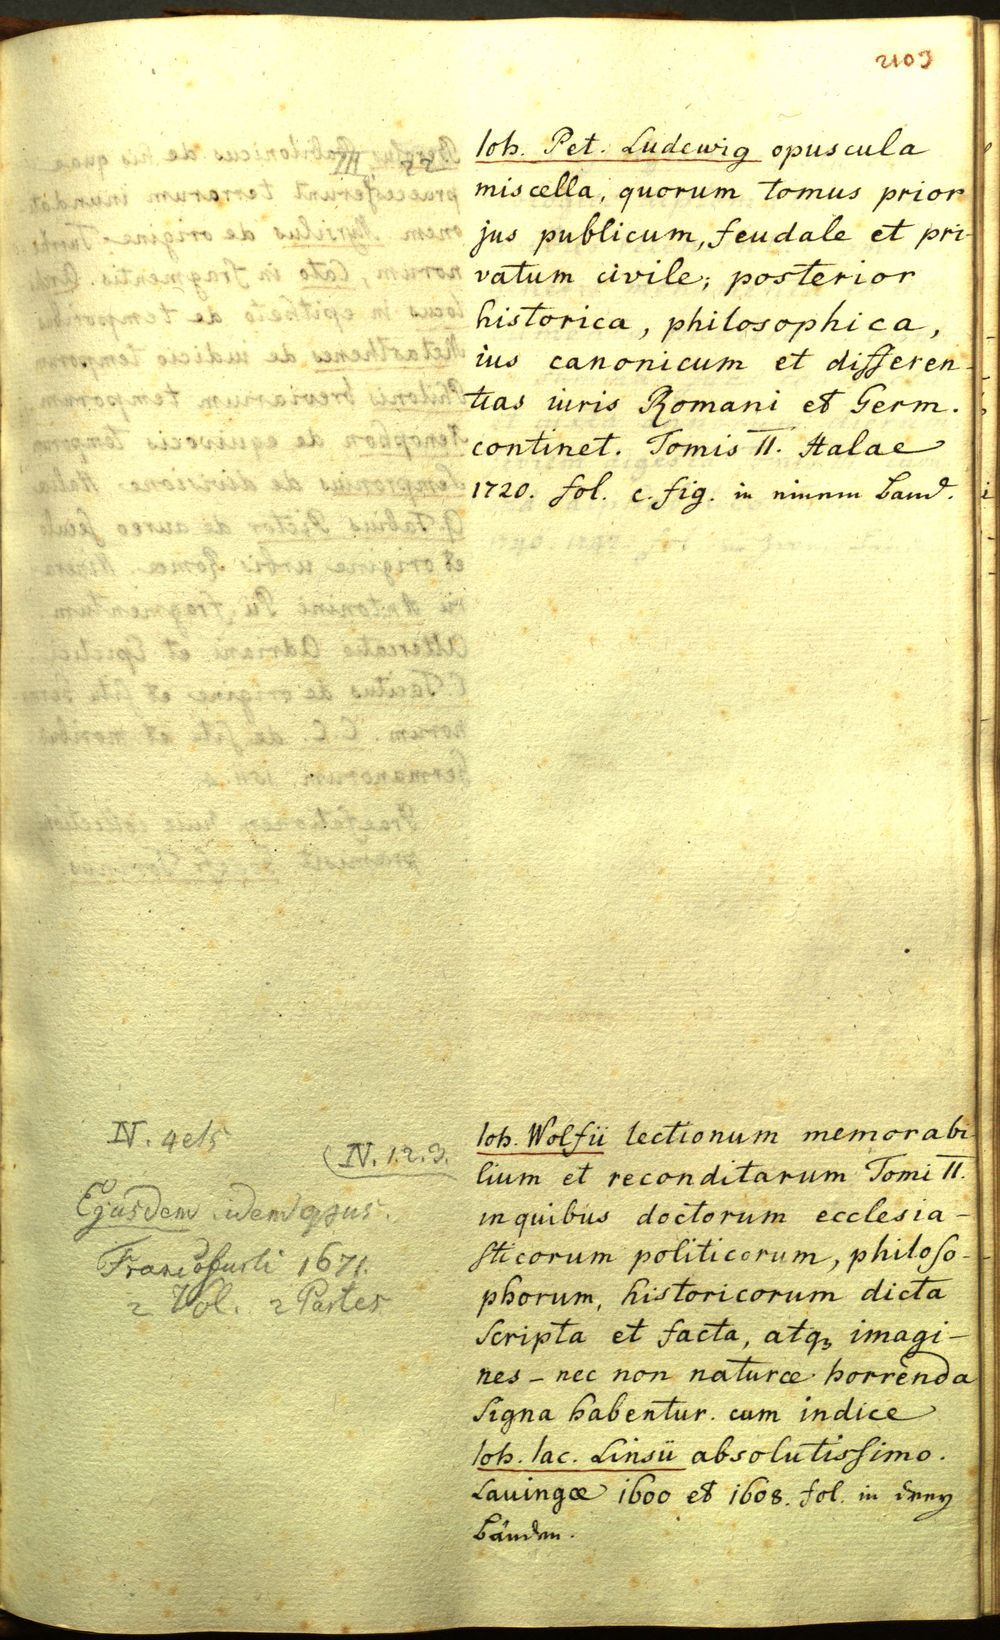 2109
Ioh. Pet. Ludewig opuscula
miscella, quorum tomus prior
jus publicum, feudale et pri-
vatum civile; posterior
historica, philosophica,
ius canonicum et differen-
tias iuris Romani et Germ.
continet. Tomis II. Halae
1720. fol. c. fig. in einem Band.
III. 22
N. 4 et 5
(N. 1. 2. 3.
Ejusdem idem opus.
Francofurti 1671.
2 Vol. 2 Partes
Ioh. Wolfii lectionum memorabi
lium et reconditarum Tomi II.
in quibus doctorum ecclesia-
sticorum politicorum, philoso-
phorum, historicorum dicta
scripta et facta, atq; imagi-
nes - nec non naturæ horrenda
signa habentur. cum indice
Ioh. Iac. Linsii absolutissimo.
Lauingæ 1600 et 1608. fol. in drey
Bänden.